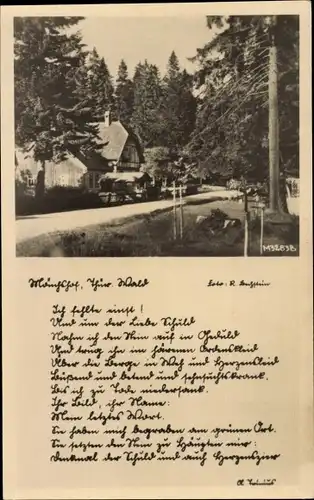 M 2838
Mönchshof, Thür. Wald
Foto: R. Bechstein
Ich fehlte einst!
Und um der Liebe Schuld
Nahm ich den Stein auf in Geduld
Und trug ihn im härenen Ordenskleid
Über die Berge in Weh und Herzensleid
Büßend und betend und sehnsuchtskrank,
Bis ich zu Tode niedersank.
Ihr Bild, ihr Name:
Mein letztes Wort.
Sie haben mich begraben am grünen Ort.
Sie setzten den Stein zu Häupten mir:
Denkmal der Schuld und auch Herzenszier